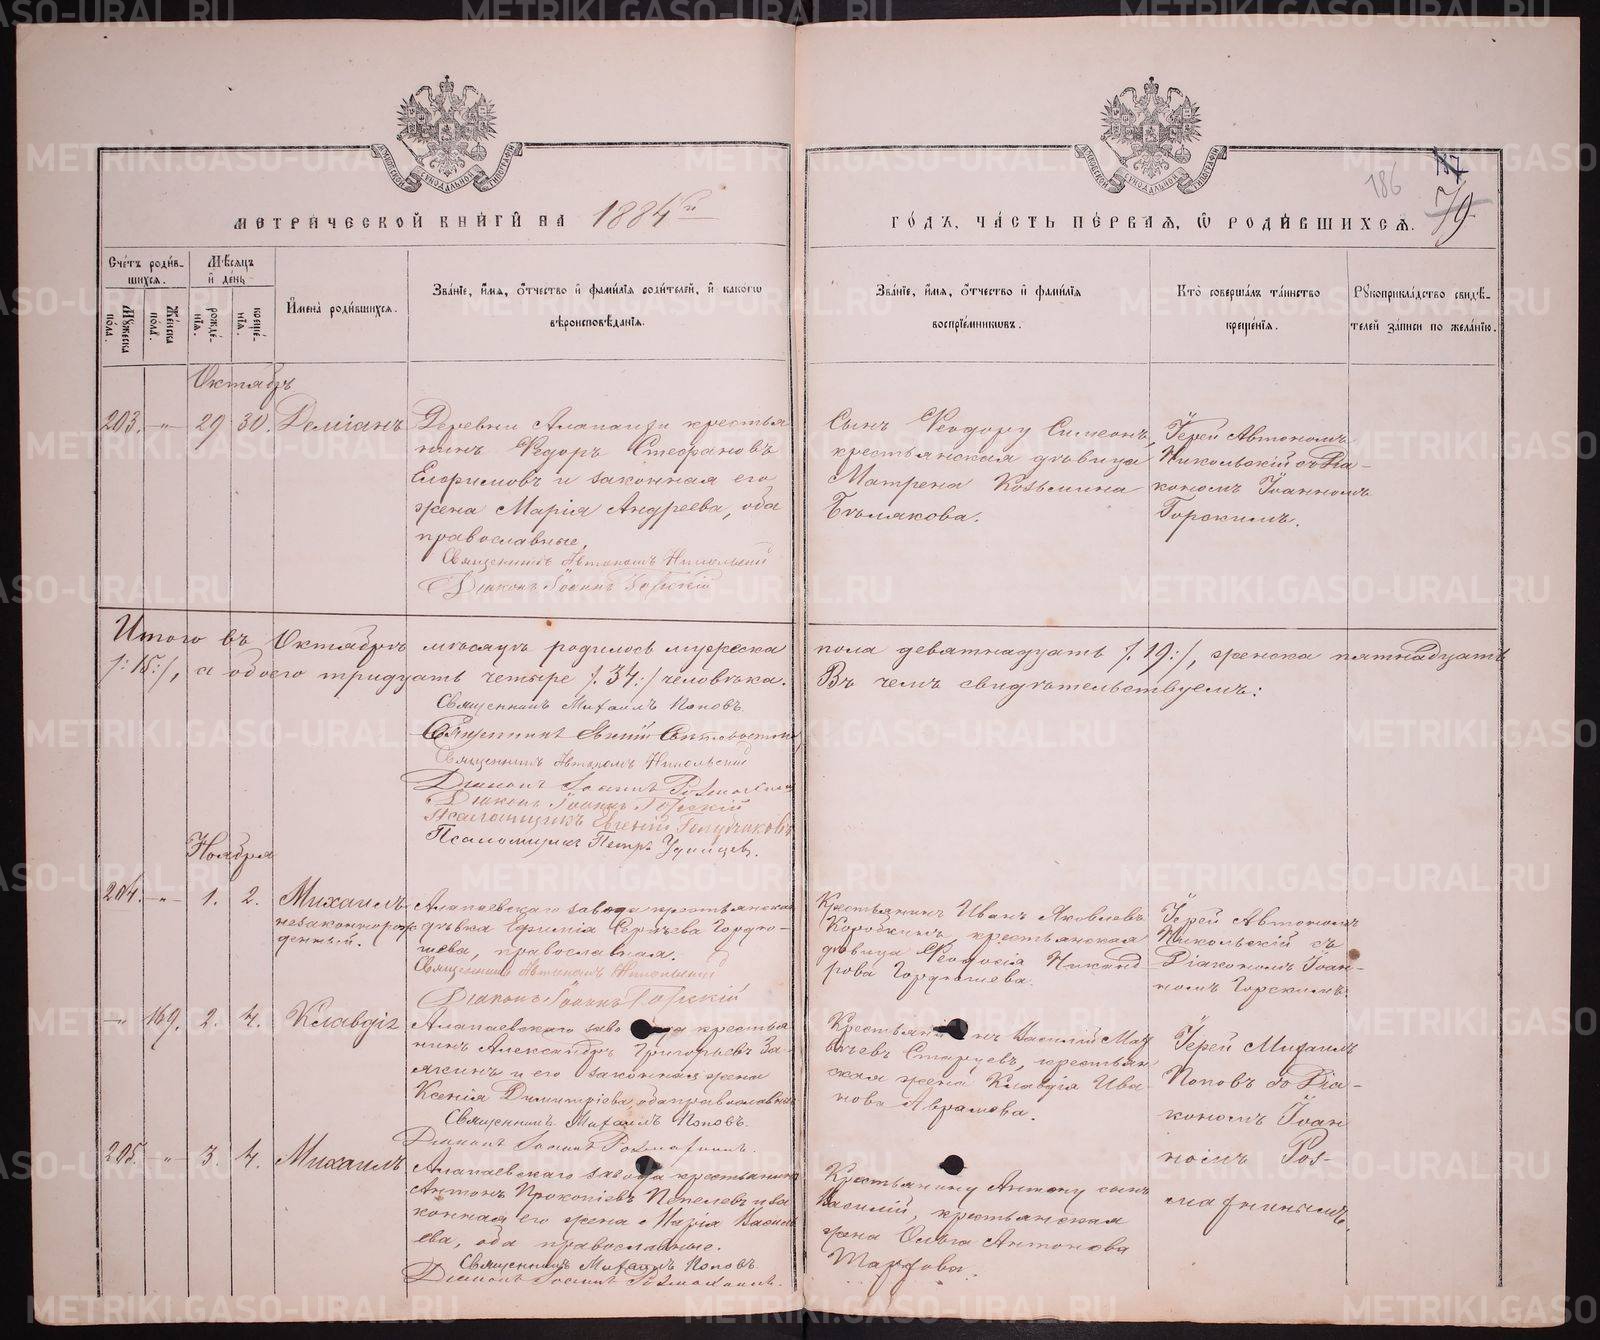 МЕТРИ́ЧЕСКОЙ КНИ́ГИ НА 1884й
ГО́ДЪ, ЧА́СТЬ ПЕ́РВАЯ, Ѡ РОДИ́ВШИХСЯ.
186
79
Сче́тъ роди́в-
шихся.
Мѣ́сяцъ
и де́нь
Му́жеска по́ла.
Же́нска по́ла.
рожде́-
нія.
креще́-
нія.
И҆мена̀ роди́вшихся.
Зва́ніе, и҆́мя, ѻ҆́тчество и҆ фами́лія роди́телей, и҆ како́гѡ
вѣроисповѣ́данія.
Зва́ніе, и҆́мя, ѻ҆́тчество и҆ фами́лія
воспріе́мниковъ.
Кто̀ соверша́лъ та́инство
креще́нія.
Рꙋкоприкла́дство свидѣ́-
телей за́писи по жела́нію.
Октябрь
203. — „ — 29 30. Демианъ
Деревни Алапаихи крестья
нинъ Ѳедоръ Стефановъ
Ефимовъ и законная его
жена Марія Андреева, оба
православные.
Священникъ Автономъ Никольскій
Діаконъ Іоаннъ Горскій
Сынъ Ѳеодору Симеонъ,
крестьянская дѣвица
Матрена Козьмина
Бѣлякова.
Іерей Автономъ
Никольскій съ Діа-
кономъ Іоанномъ
Горскимъ.
Итого въ Октябрѣ мѣсяцѣ родилось мужеска пола девятнадцать /: 19 :/, женска пятнадцать
/: 15 :/, а обоего тридцать четыре /: 34 :/ человѣка. Въ чемъ свидѣтельствуемъ:
Священникъ Михаилъ Поповъ.
Священникъ
Священникъ Автономъ Никольскій
Діаконъ Іоаннъ
Діаконъ Іоаннъ Горскій
Псаломщикъ Евгеній
Псаломщикъ Петръ
Ноября
204. — „ — 1. 2. Михаилъ
незаконнорож
денный.
Алапаевскаго завода крестьянская
дѣвка Ефимія Сергѣева Гордю-
шева, православная.
Священникъ Автономъ Никольскій
Діаконъ Іоаннъ Горскій
Крестьянинъ Иванъ Яковлевъ
Коробкинъ, крестьянская
дѣвица Ѳеодосія Никанд
рова Гордюшева.
Іерей Автономъ
Никольскій съ
Діакономъ Іоан-
номъ Горскимъ.
— „ — 169. 2. 4. Клавдія
Алапаевскаго завода крестья
нинъ Александръ Григорьевъ За-
якинъ и его законная жена
Ксенія Димитріева, оба православные
Священникъ Михаилъ Поповъ.
Діаконъ Іоаннъ Розмафинъ.
Крестьянинъ Василій Мат
вѣевъ Старцевъ, крестьян
ская жена Клавдія Ива
нова Аврамова.
Іерей Михаилъ
Поповъ со Діа-
кономъ Іоан
номъ Роз-
мафинымъ.
205. — „ — 3. 4. Михаилъ
Алапаевскаго завода крестьянинъ
Антонъ Прокопіевъ Пепелевъ и за
конная его жена Марія Василь
ева, оба православные.
Священникъ Михаилъ Поповъ
Діаконъ Іоаннъ Розмафинъ.
Крестьянину Антону сынъ
Василій, крестьянская
жена Ольга Антонова
Шарфова.
METRIKI.GASO-URAL.RU